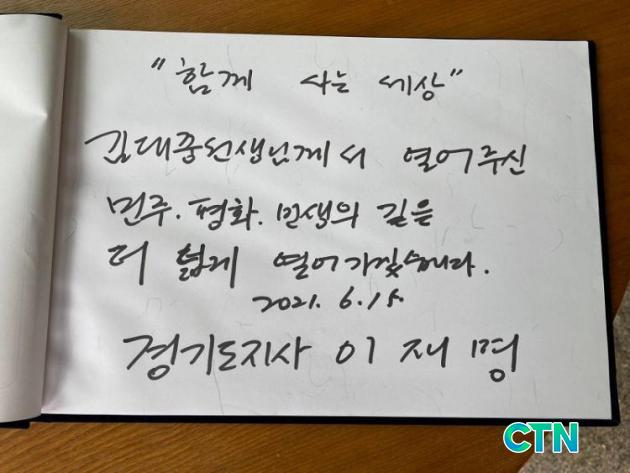 "함께 사는 세상"
김대중선생님께서 열어주신
민주. 평화. 민생의 길을
더 넓게 열어가겠습니다.
2021. 6. 15.
경기도지사 이 재 명
CTN